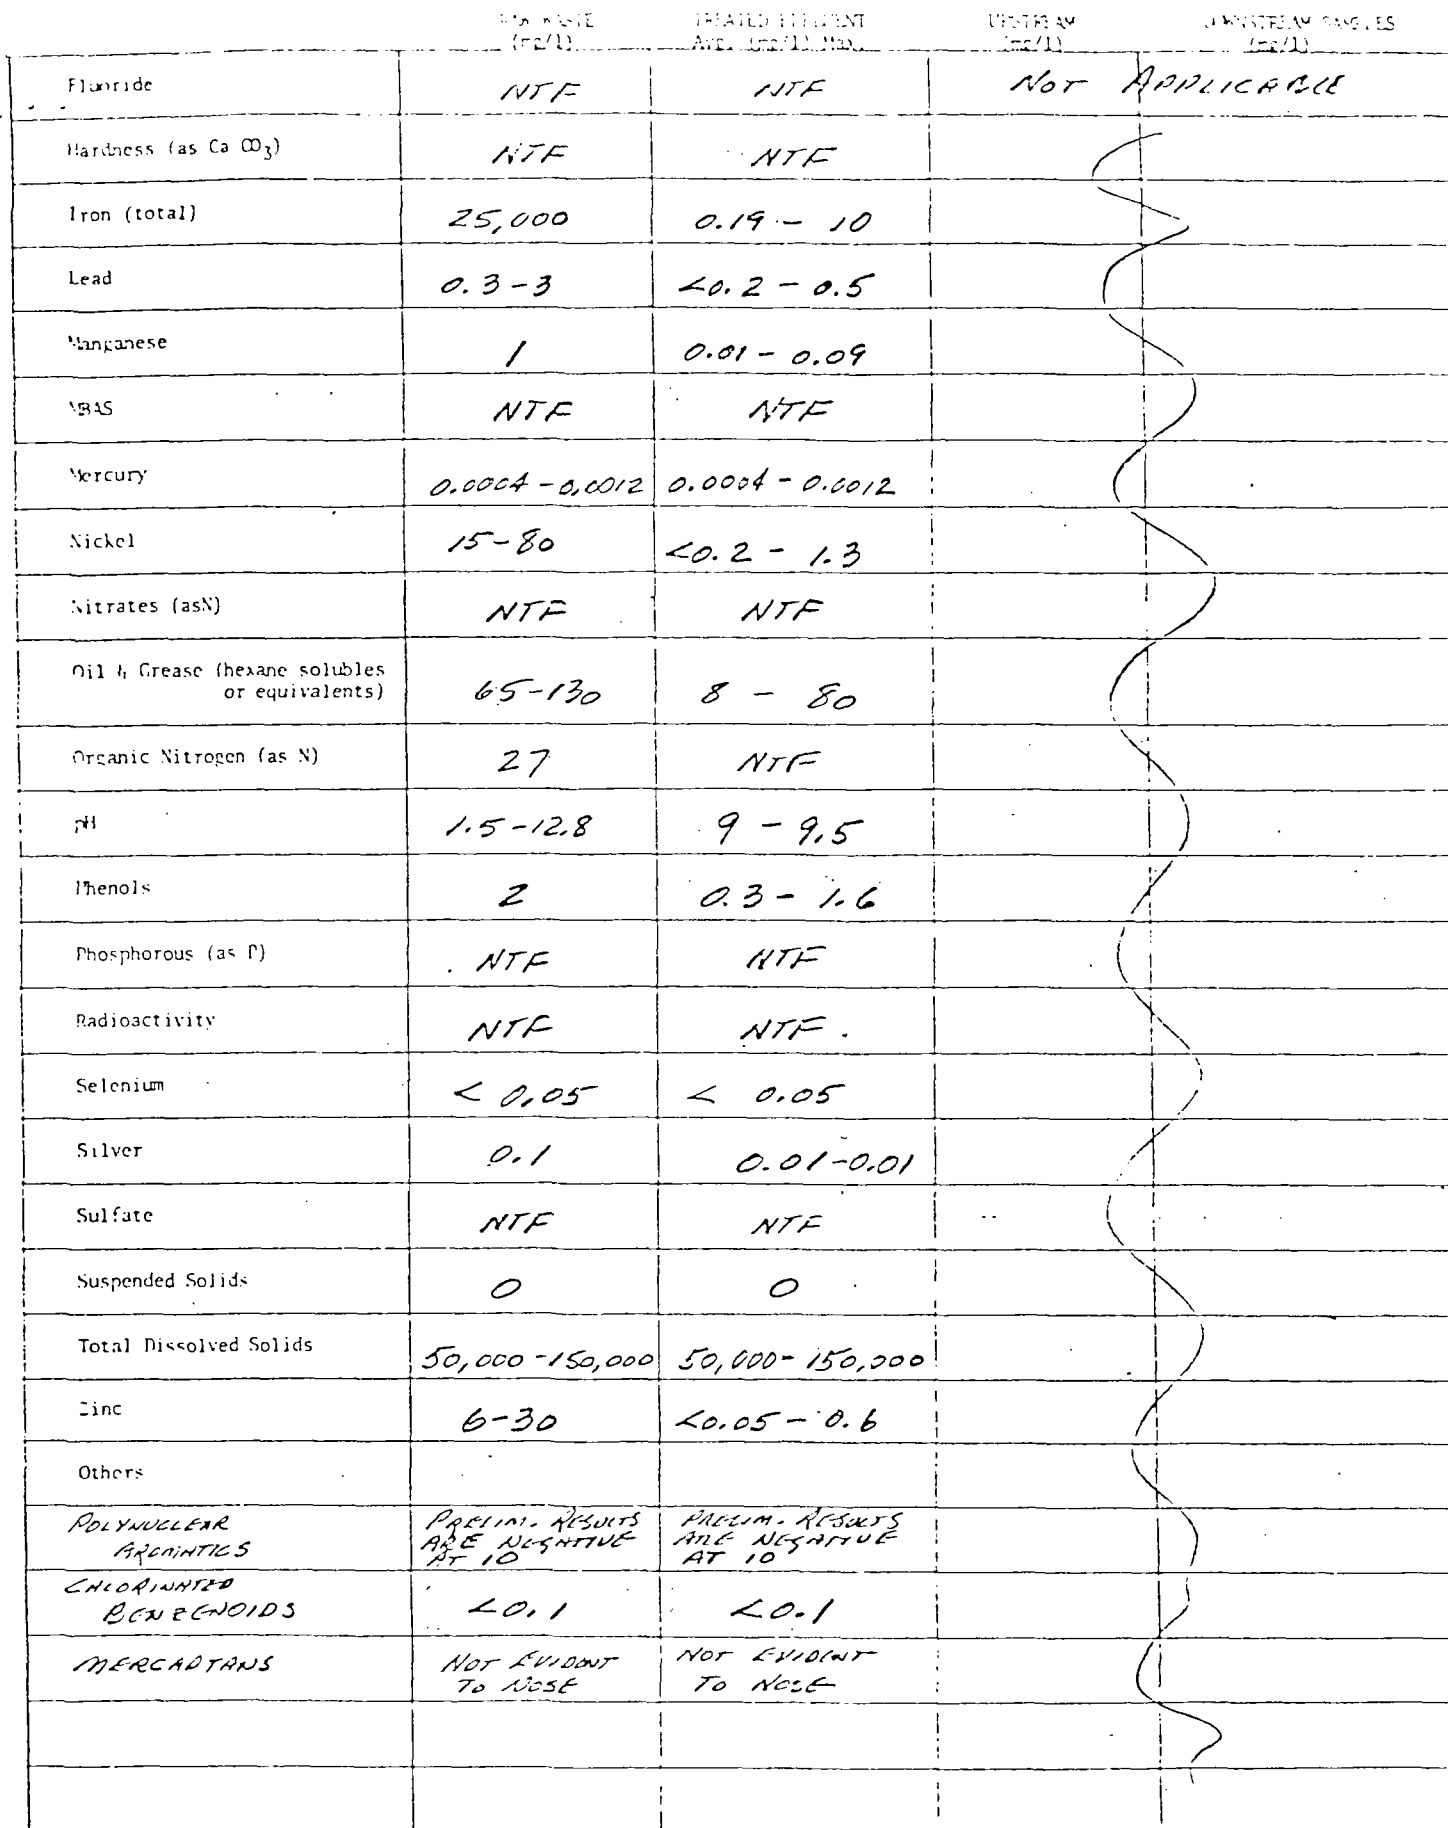 RAW WASTE TREATED EFFLUENT UPSTREAM DOWNSTREAM SAMPLES
(mg/l) Avg. (mg/l) Max. (mg/l) (mg/l)
Fluoride NTF NTF NOT APPLICABLE
Hardness (as Ca CO3) NTF NTF
Iron (total) 25,000 0.19 - 10
Lead 0.3-3 <0.2 - 0.5
Manganese 1 0.01 - 0.09
MBAS NTF NTF
Mercury 0.0004-0.0012 0.0004-0.0012
Nickel 15-80 <0.2 - 1.3
Nitrates (asN) NTF NTF
Oil & Grease (hexane solubles
or equivalents) 65-130 8 - 80
Organic Nitrogen (as N) 27 NTF
pH 1.5-12.8 9 - 9.5
Phenols 2 0.3 - 1.6
Phosphorous (as P) NTF NTF
Radioactivity NTF NTF.
Selenium < 0.05 < 0.05
Silver 0.1 0.01-0.01
Sulfate NTF NTF
Suspended Solids 0 0
Total Dissolved Solids 50,000-150,000 50,000-150,000
Zinc 6-30 <0.05 - 0.6
Others
POLYNUCLEAR PRELIM. RESULTS PRELIM. RESULTS
AROMATICS ARE NEGATIVE ARE NEGATIVE
AT 10 AT 10
CHLORINATED
BENZENOIDS <0.1 <0.1
MERCAPTANS NOT EVIDENT NOT EVIDENT
TO NOSE TO NOSE